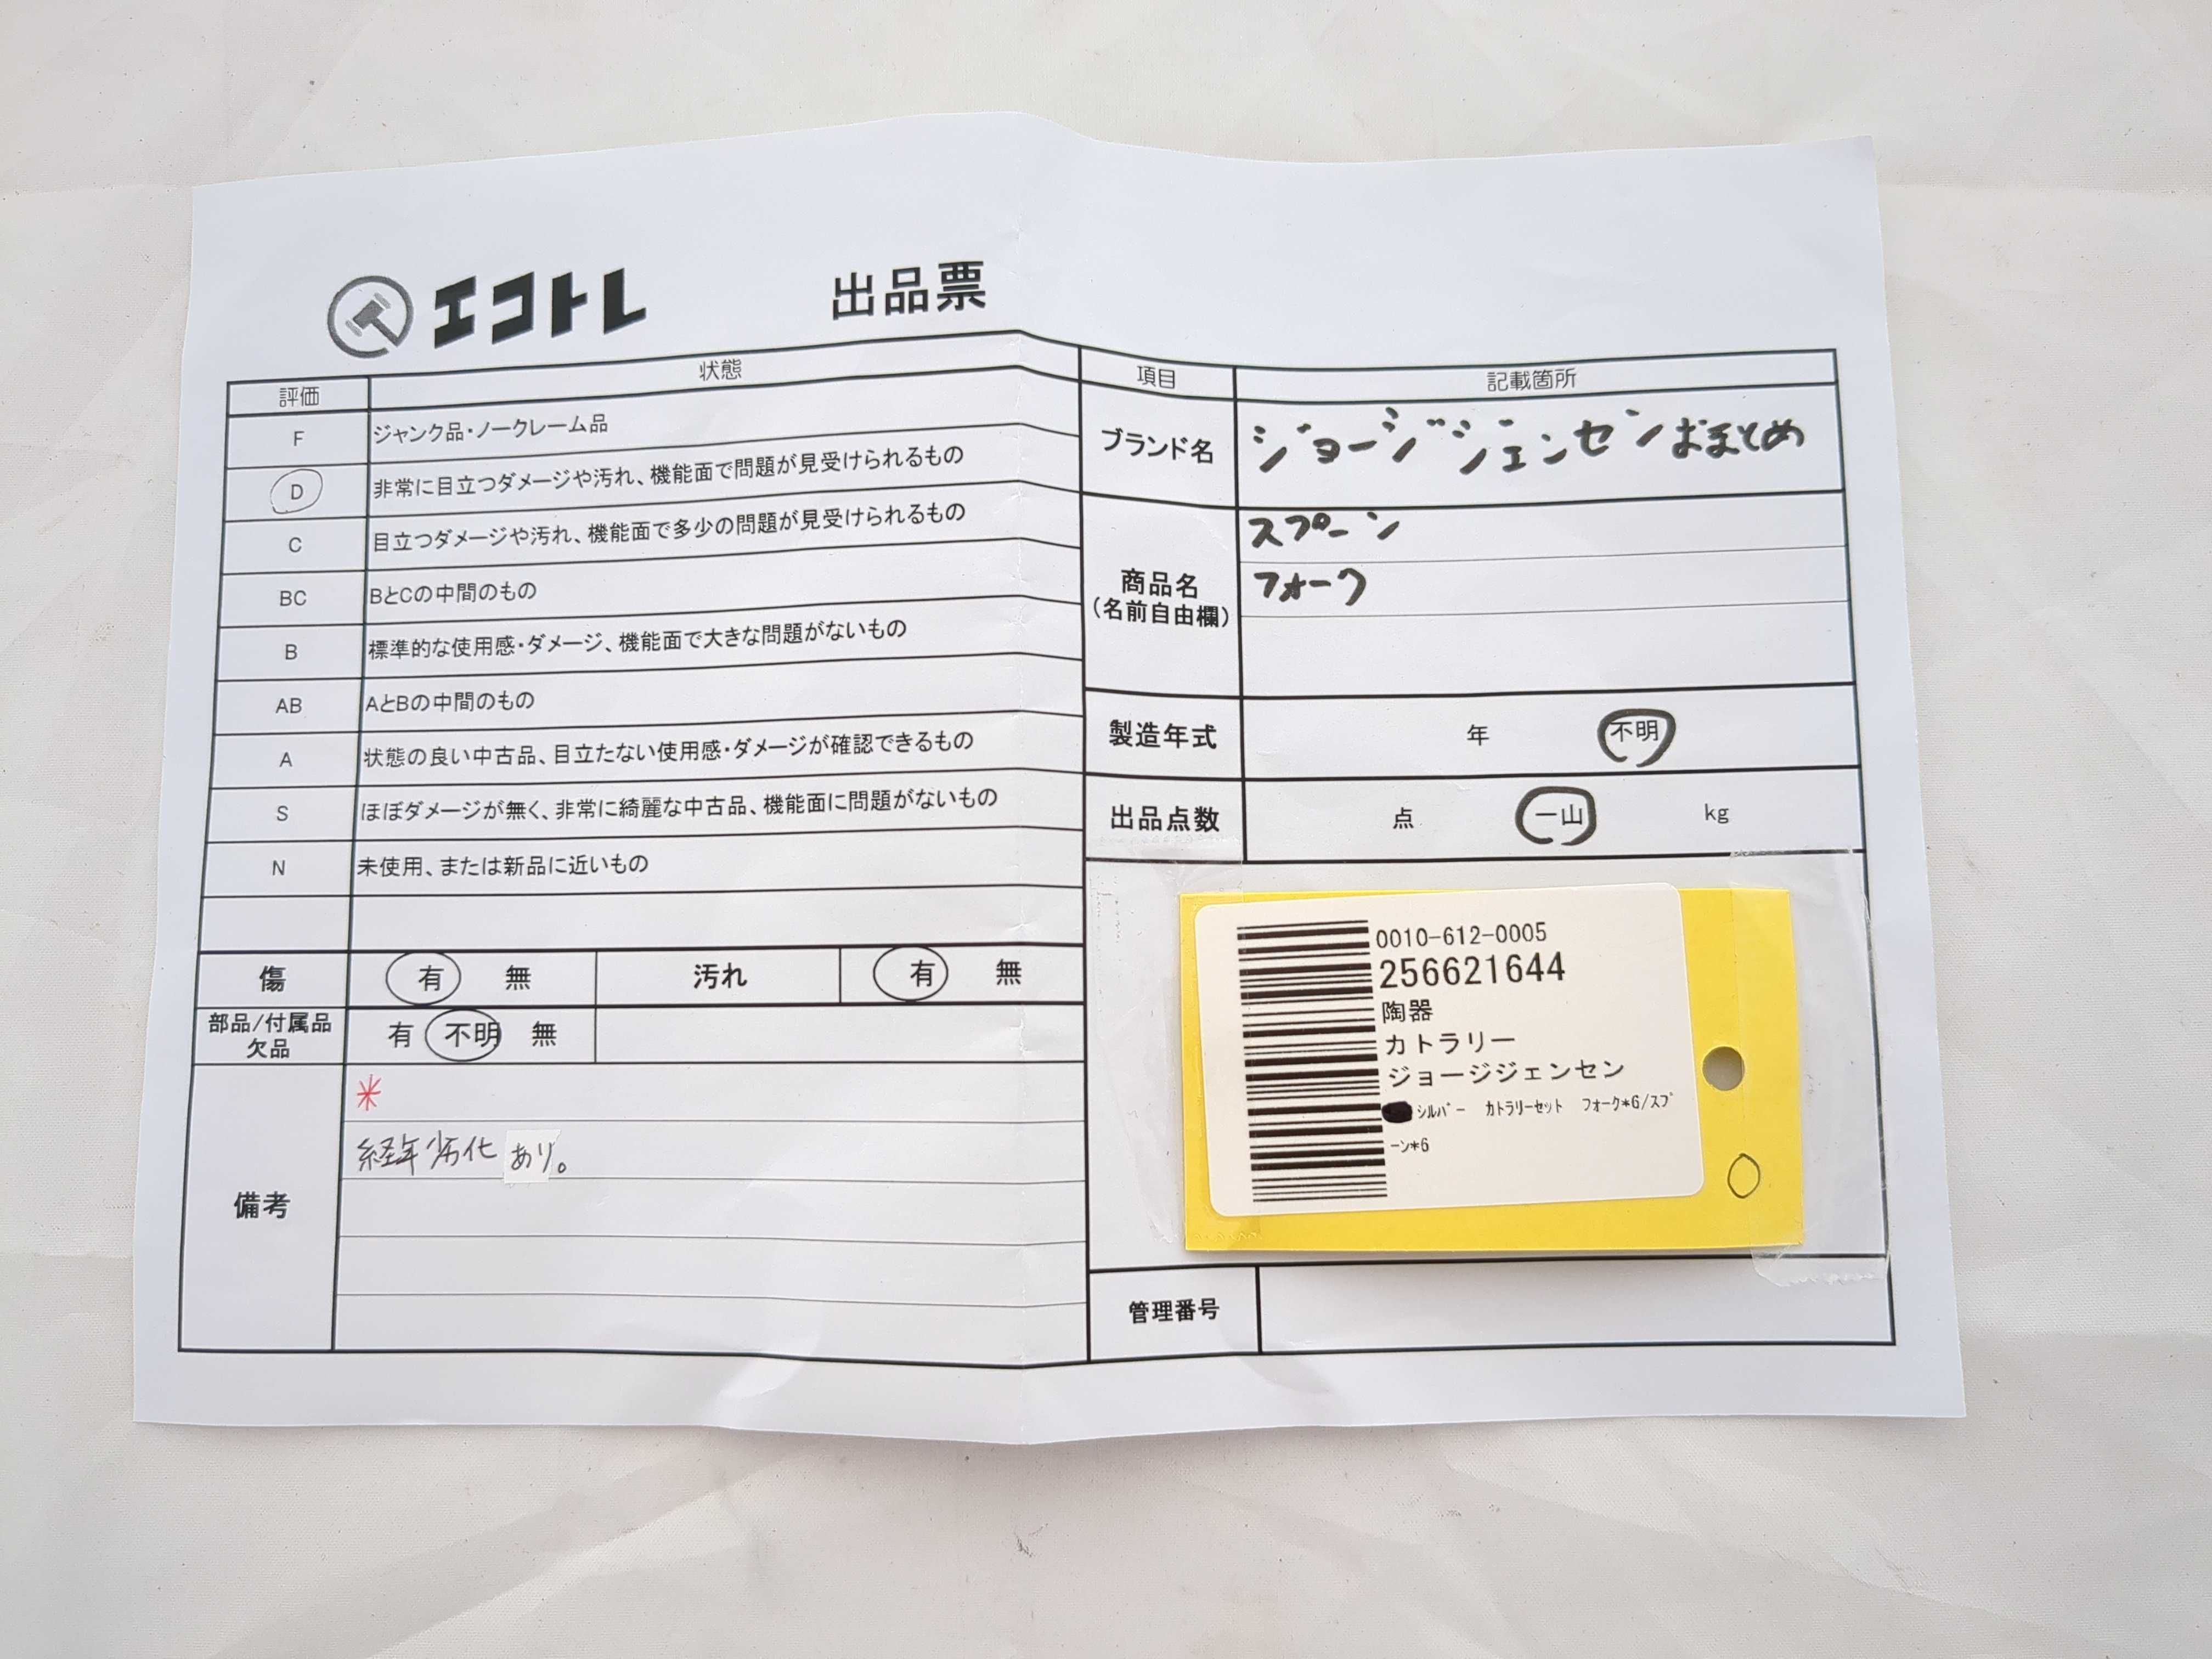 エコトレ 出品票
評価 状態
F ジャンク品・ノークレーム品
D 非常に目立つダメージや汚れ、機能面で問題が見受けられるもの
C 目立つダメージや汚れ、機能面で多少の問題が見受けられるもの
BC BとCの中間のもの
B 標準的な使用感・ダメージ、機能面で大きな問題がないもの
AB AとBの中間のもの
A 状態の良い中古品、目立たない使用感・ダメージが確認できるもの
S ほぼダメージが無く、非常に綺麗な中古品、機能面に問題がないもの
N 未使用、または新品に近いもの
傷 有 無 汚れ 有 無
部品/付属品 欠品 有 不明 無
備考
*
経年劣化あり。
項目 記載箇所
ブランド名 ジョージジェンセンおまとめ
商品名 スプーン
(名前自由欄) フォーク
製造年式 年 不明
出品点数 点 一山 kg
0010-612-0005
256621644
陶器
カトラリー
ジョージジェンセン
シルバー カトラリーセット フォーク*6/スプ
ーン*6
管理番号